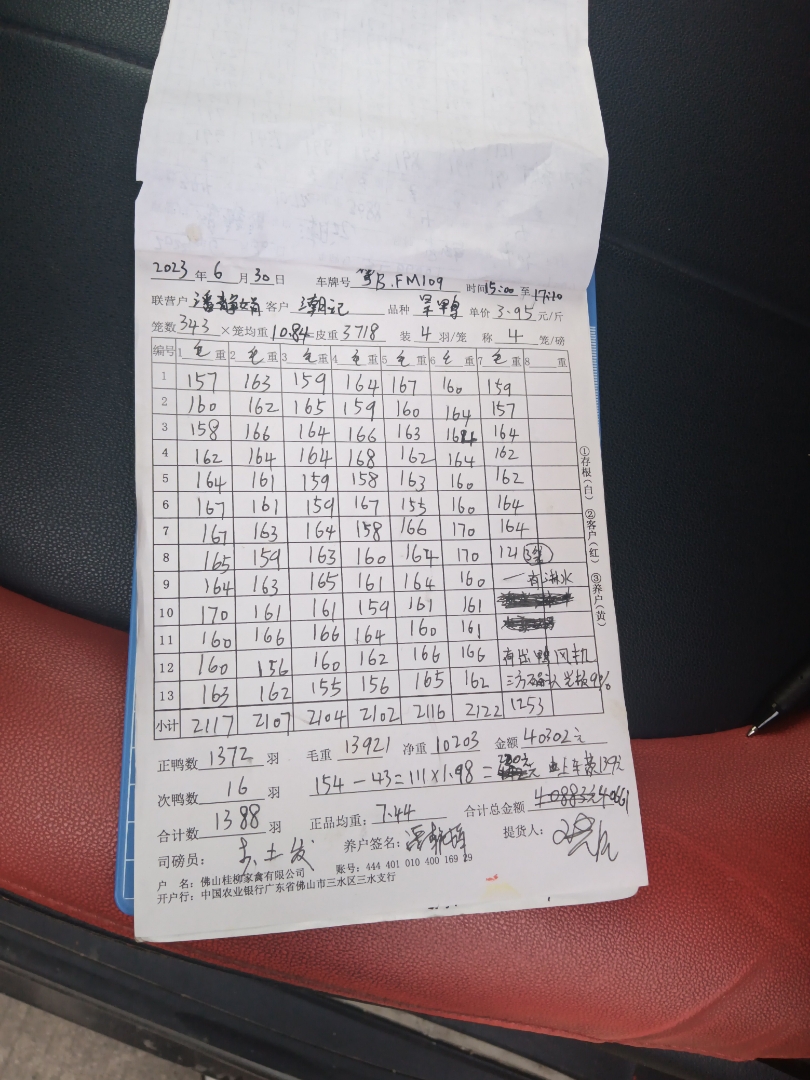 2023年6月30日 车牌号 粤B.FM109 时间15:00至17:10
联营户 客户 潮记 品种 单价3.95元/斤
笼数343×笼均重10.84=皮重3718 装4羽/笼 称4笼/磅
编号 1毛重 2毛重 3毛重 4毛重 5毛重 6毛重 7毛重 8 重
1 157 163 159 164 167 160 159
2 160 162 165 159 160 164 157
3 158 166 164 166 163 164 164
4 162 164 164 168 162 164 162
5 164 161 159 158 163 160 162
6 167 161 159 167 155 160 164
7 167 163 164 158 166 170 164
8 165 159 163 160 164 170 121 3笼
9 164 163 165 161 164 160 一有淋水
10 170 161 161 159 161 161
11 160 166 166 164 160 161
12 160 156 160 162 166 166 有出鸭风机
13 163 162 155 156 165 162 三方确认
小计 2117 2107 2104 2102 2116 2122 1253
①存根(白) ②客户(红) ③养户(黄)
正鸭数1372羽 毛重13921 净重10203 金额40302元
次鸭数16羽 154-43=111×1.98=220元
合计数1388羽 正品均重:7.44 合计总金额40883元40661
司磅员: 养户签名: 提货人:
户 名:佛山桂柳家禽有限公司 账号:444 401 010 400 169 29
开户行:中国农业银行广东省佛山市三水区三水支行